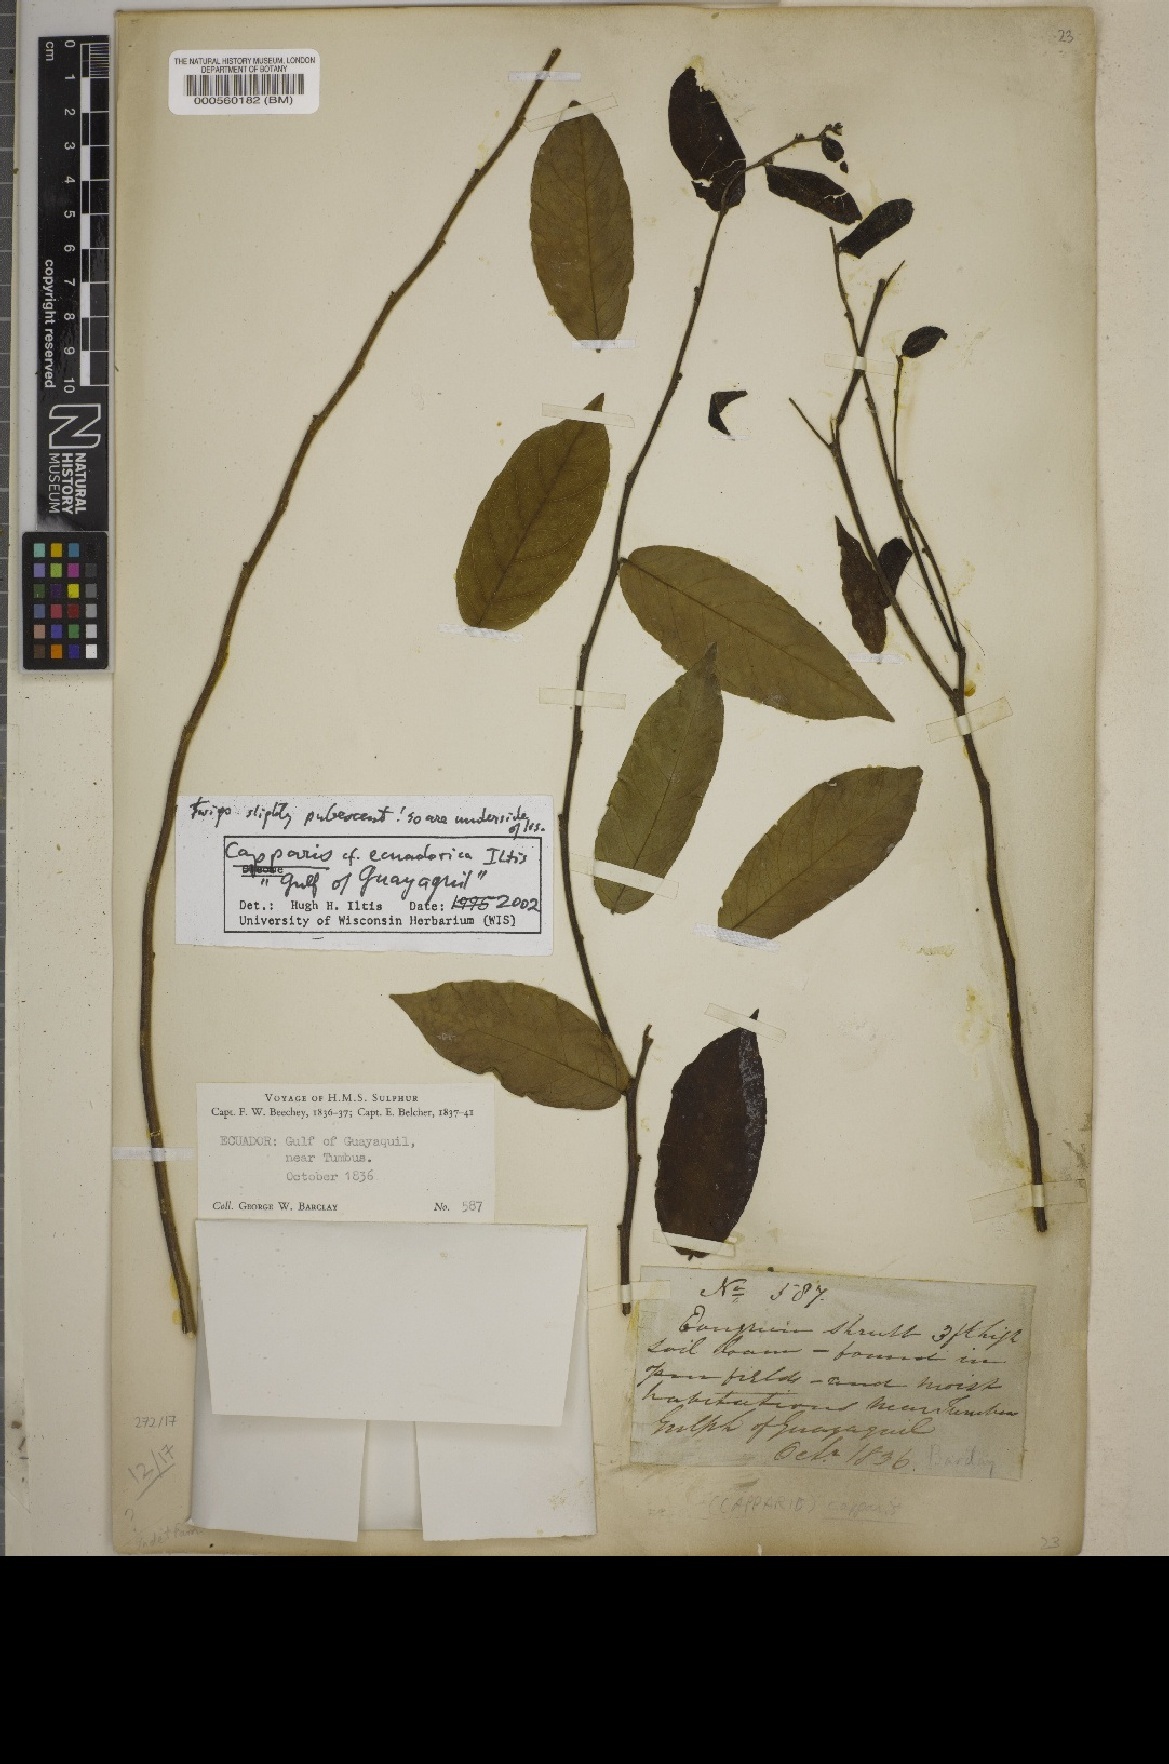 23
THE NATURAL HISTORY MUSEUM, LONDON
DEPARTMENT OF BOTANY
000560182 (BM)
cm
0
1
2
3
4
5
6
7
8
9
10
copyright reserved
NATURAL
HISTORY
MUSEUM
Twigs slightly pubescent! so are underside
of lvs.
Capparis cf. ecuadorica Iltis
"Gulf of Guayaquil"
Det.: Hugh H. Iltis Date: 1995 2002
University of Wisconsin Herbarium (WIS)
VOYAGE OF H.M.S. SULPHUR
Capt. F. W. Beechey, 1836-37; Capt. E. Belcher, 1837-41
ECUADOR: Gulf of Guayaquil,
near Tumbus.
October 1836
Coll. GEORGE W. BARCLAY No. 587
No 587.
shrub 3ft high
soil loam - found in
open fields - and moist
habitations near Tumbes
Gulph of Guayaquil
Octr 1836. Barclay
272/17
12/17
?
(CAPPARID) Capparis
23